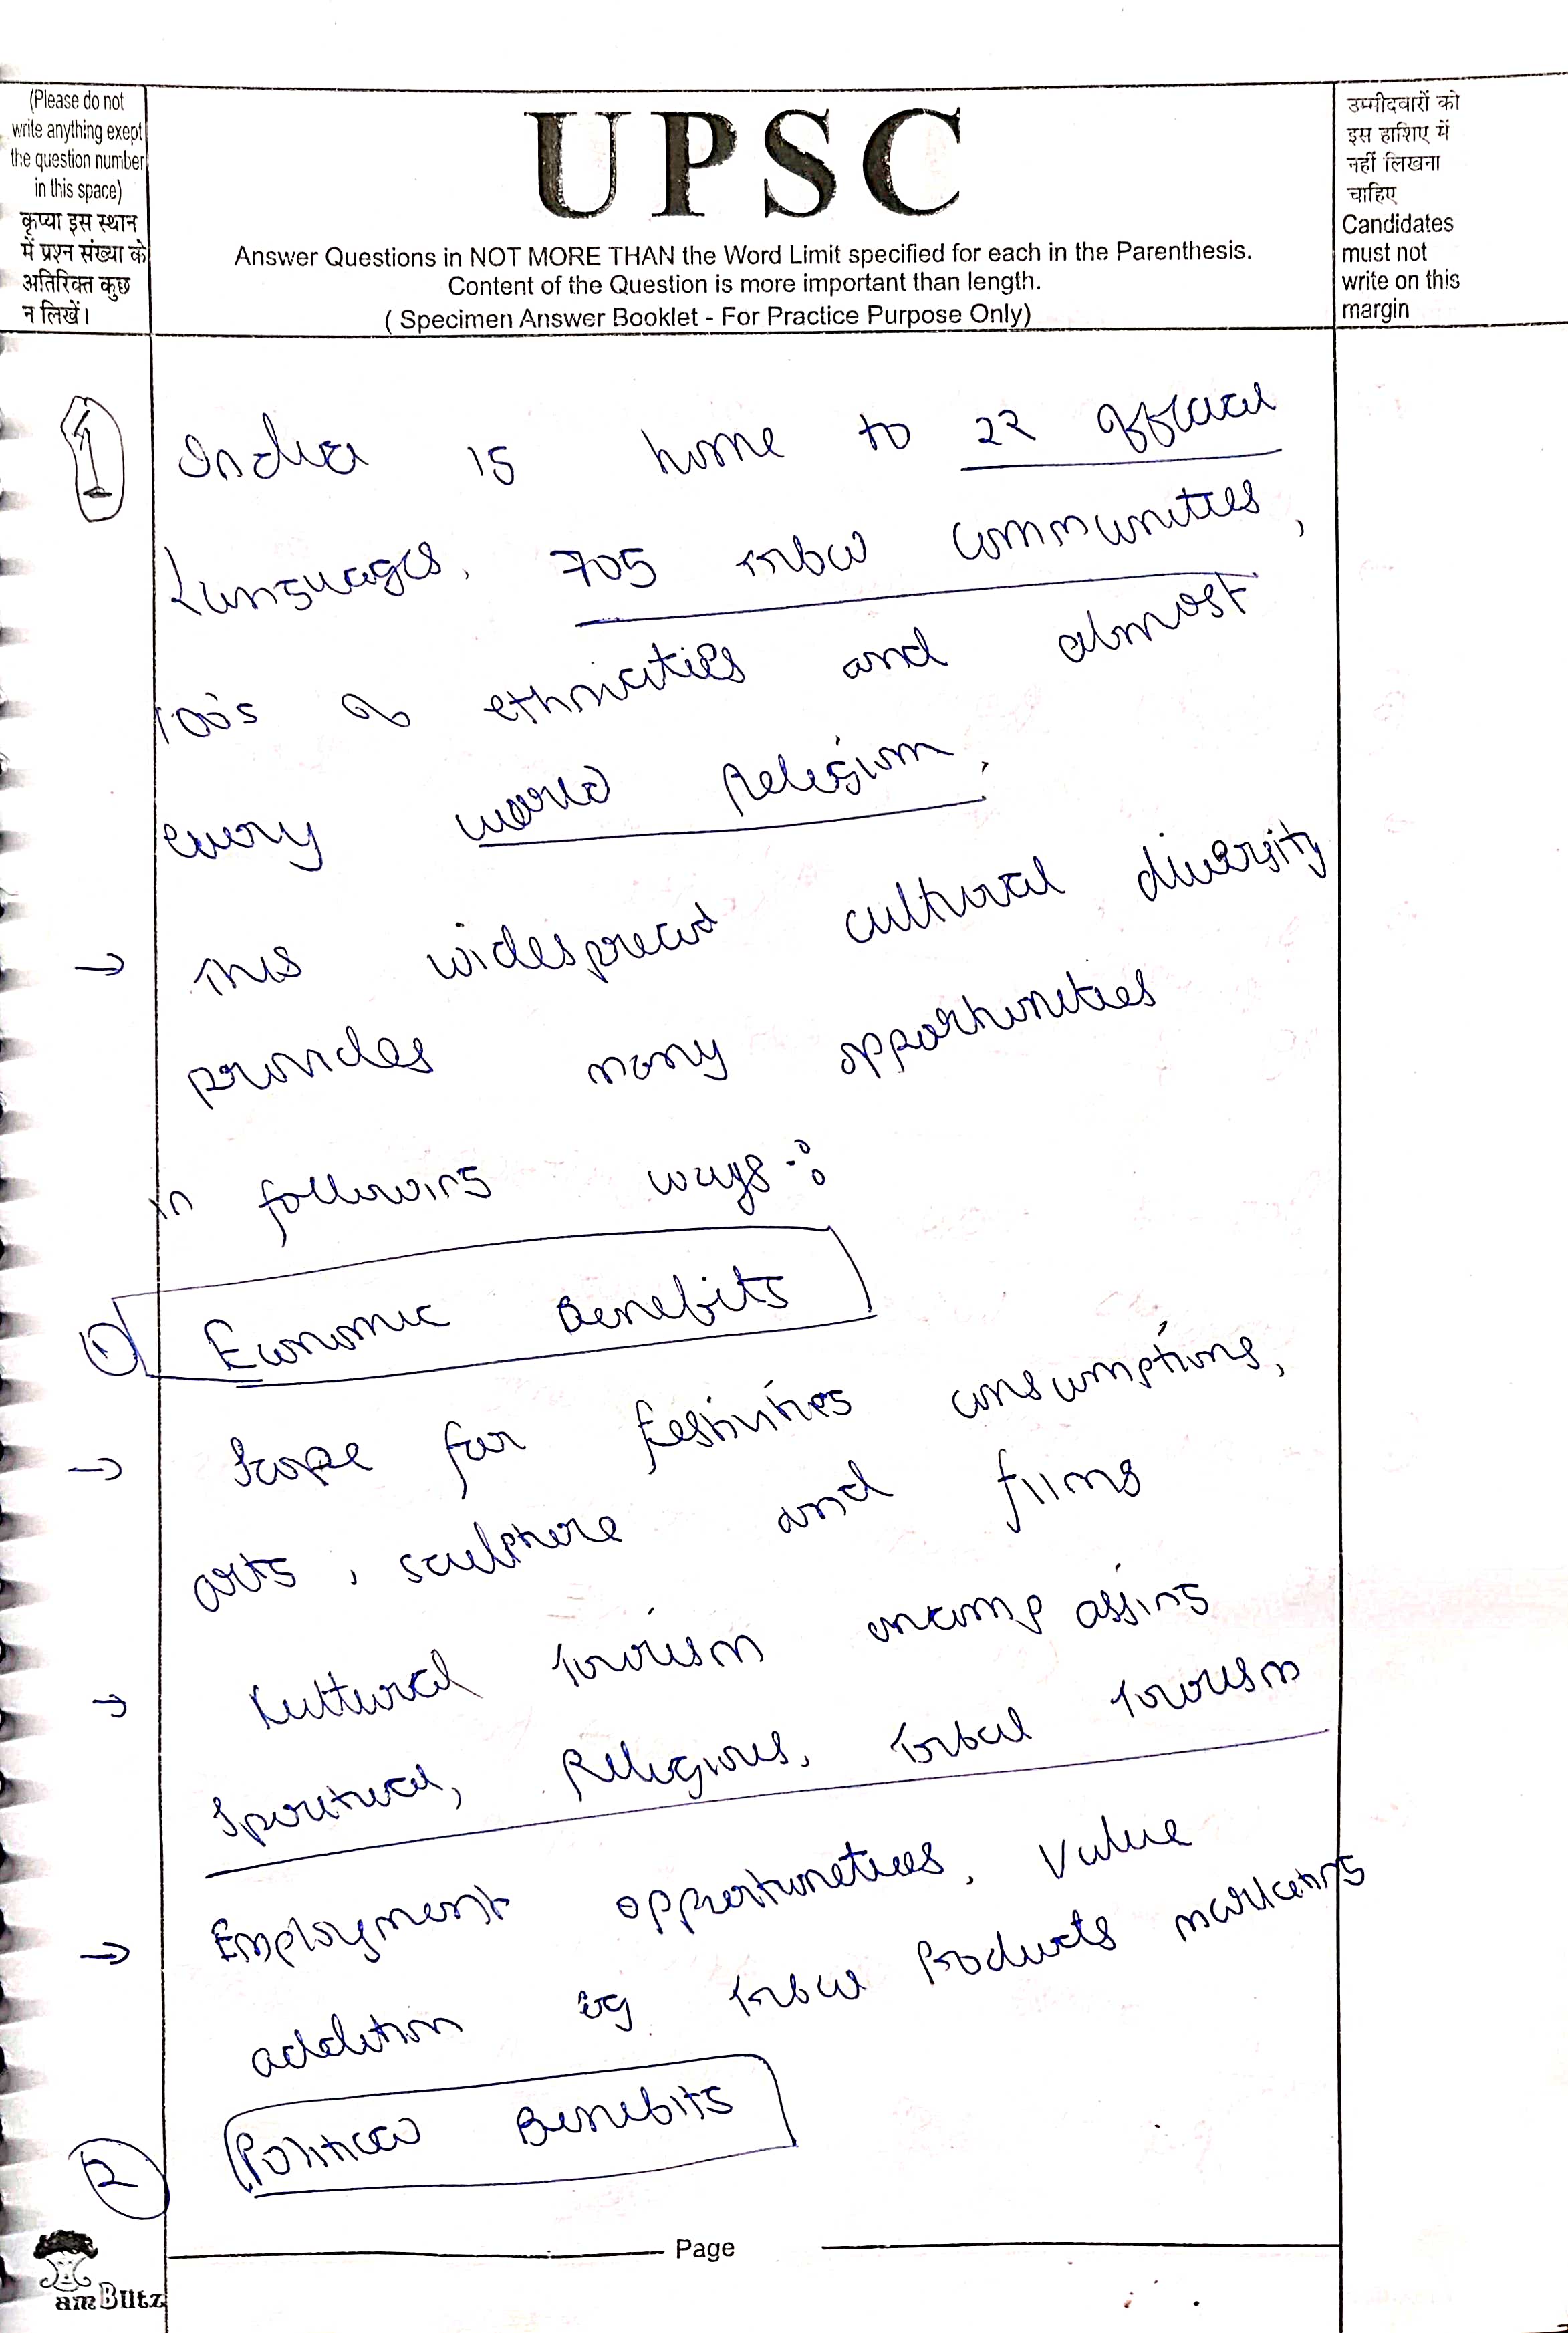 (Please do not
write anything exept
the question number
in this space)
कृप्या इस स्थान
में प्रश्न संख्या के
अतिरिक्त कुछ
न लिखें।
UPSC
Answer Questions in NOT MORE THAN the Word Limit specified for each in the Parenthesis.
Content of the Question is more important than length.
( Specimen Answer Booklet - For Practice Purpose Only)
उम्मीदवारों को
इस हाशिए में
नहीं लिखना
चाहिए
Candidates
must not
write on this
margin
1 India is home to 22 official
Languages, 705 tribal communities,
100's of ethnicities and almost
every world Religion,
→ This widespread cultural diversity
provides many opportunities
in following ways:-
① Economic Benefits
→ Scope for festivities consumptions,
arts, sculpture and films
→ Cultural tourism encompassing
Spiritual, Religious, tribal tourism
→ Employment opportunities, value
addition eg tribal Products marketing
② Political Benefits
Page
amBlitz